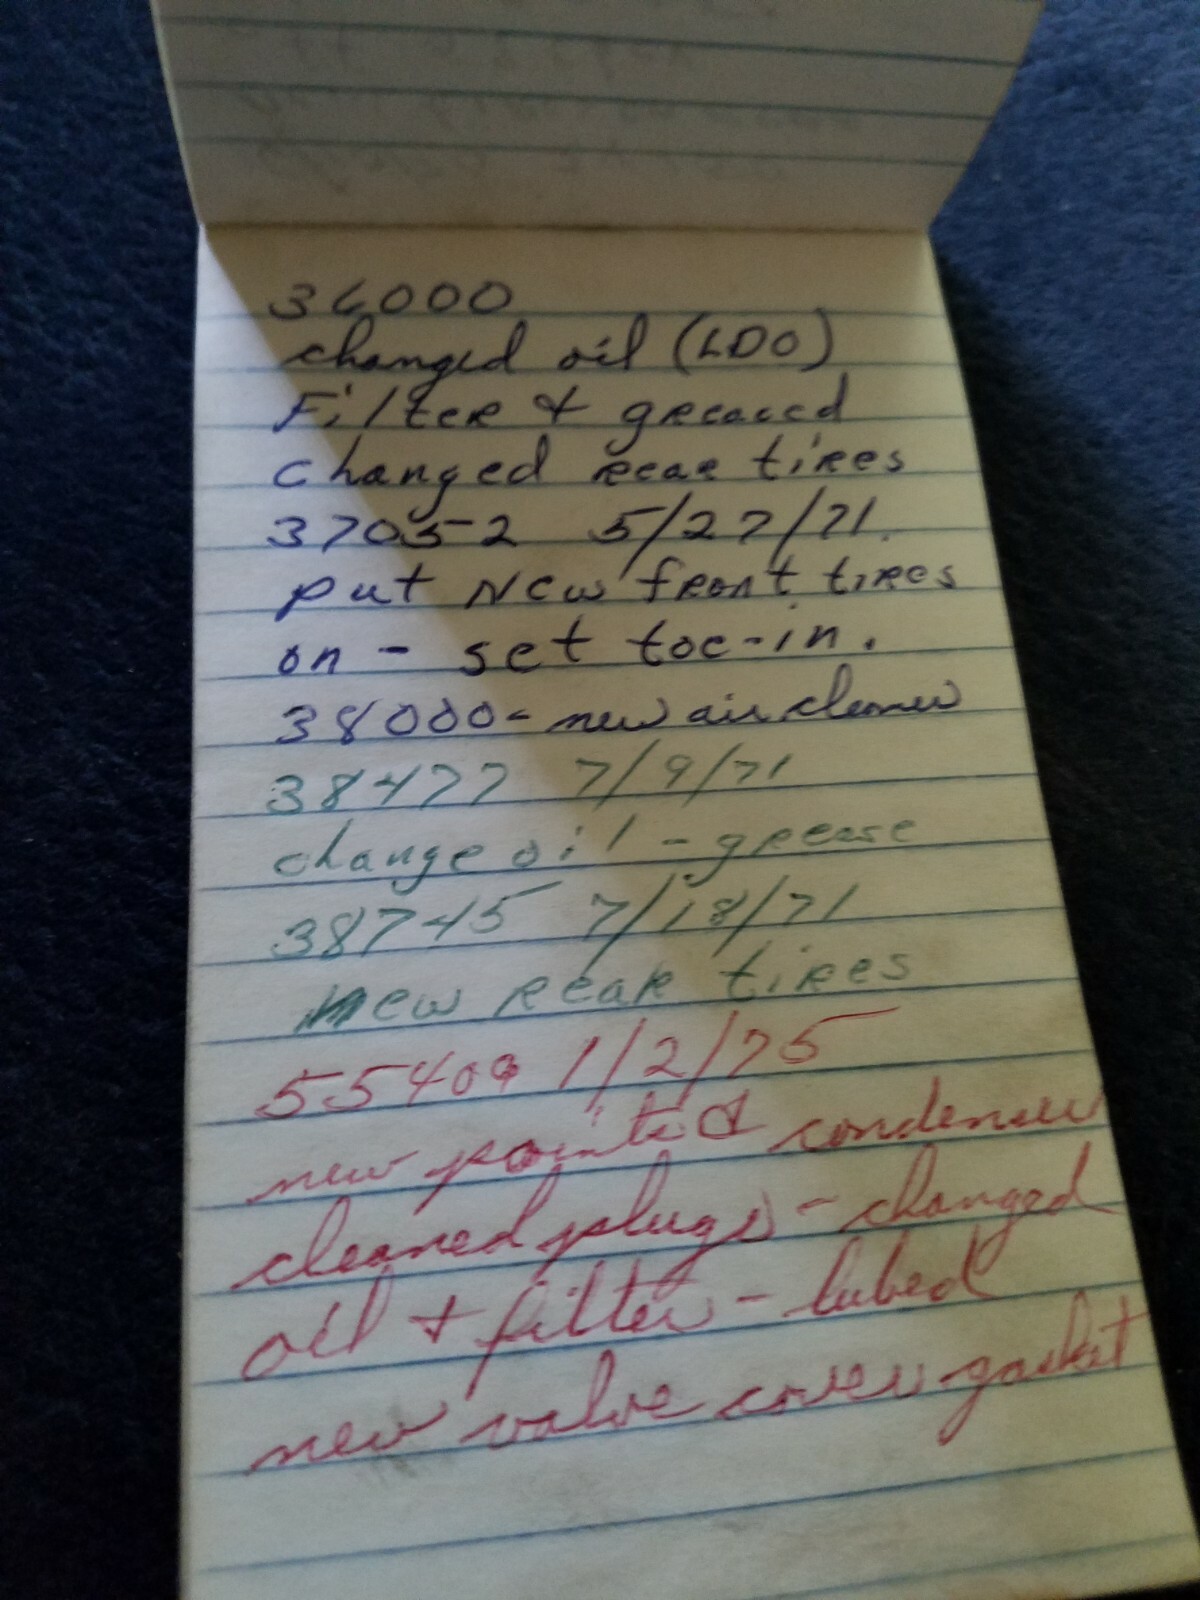 36000
changed oil (LDO)
Filter & greased
changed rear tires
37052 5/27/71.
put New front tires
on - set toe-in.
38000 - new air cleaner
38477 7/9/71
change oil - grease
38745 7/18/71
new rear tires
55409 1/2/75
new points & condenser
cleaned plugs - changed
oil + filter - lubed
new valve cover gasket